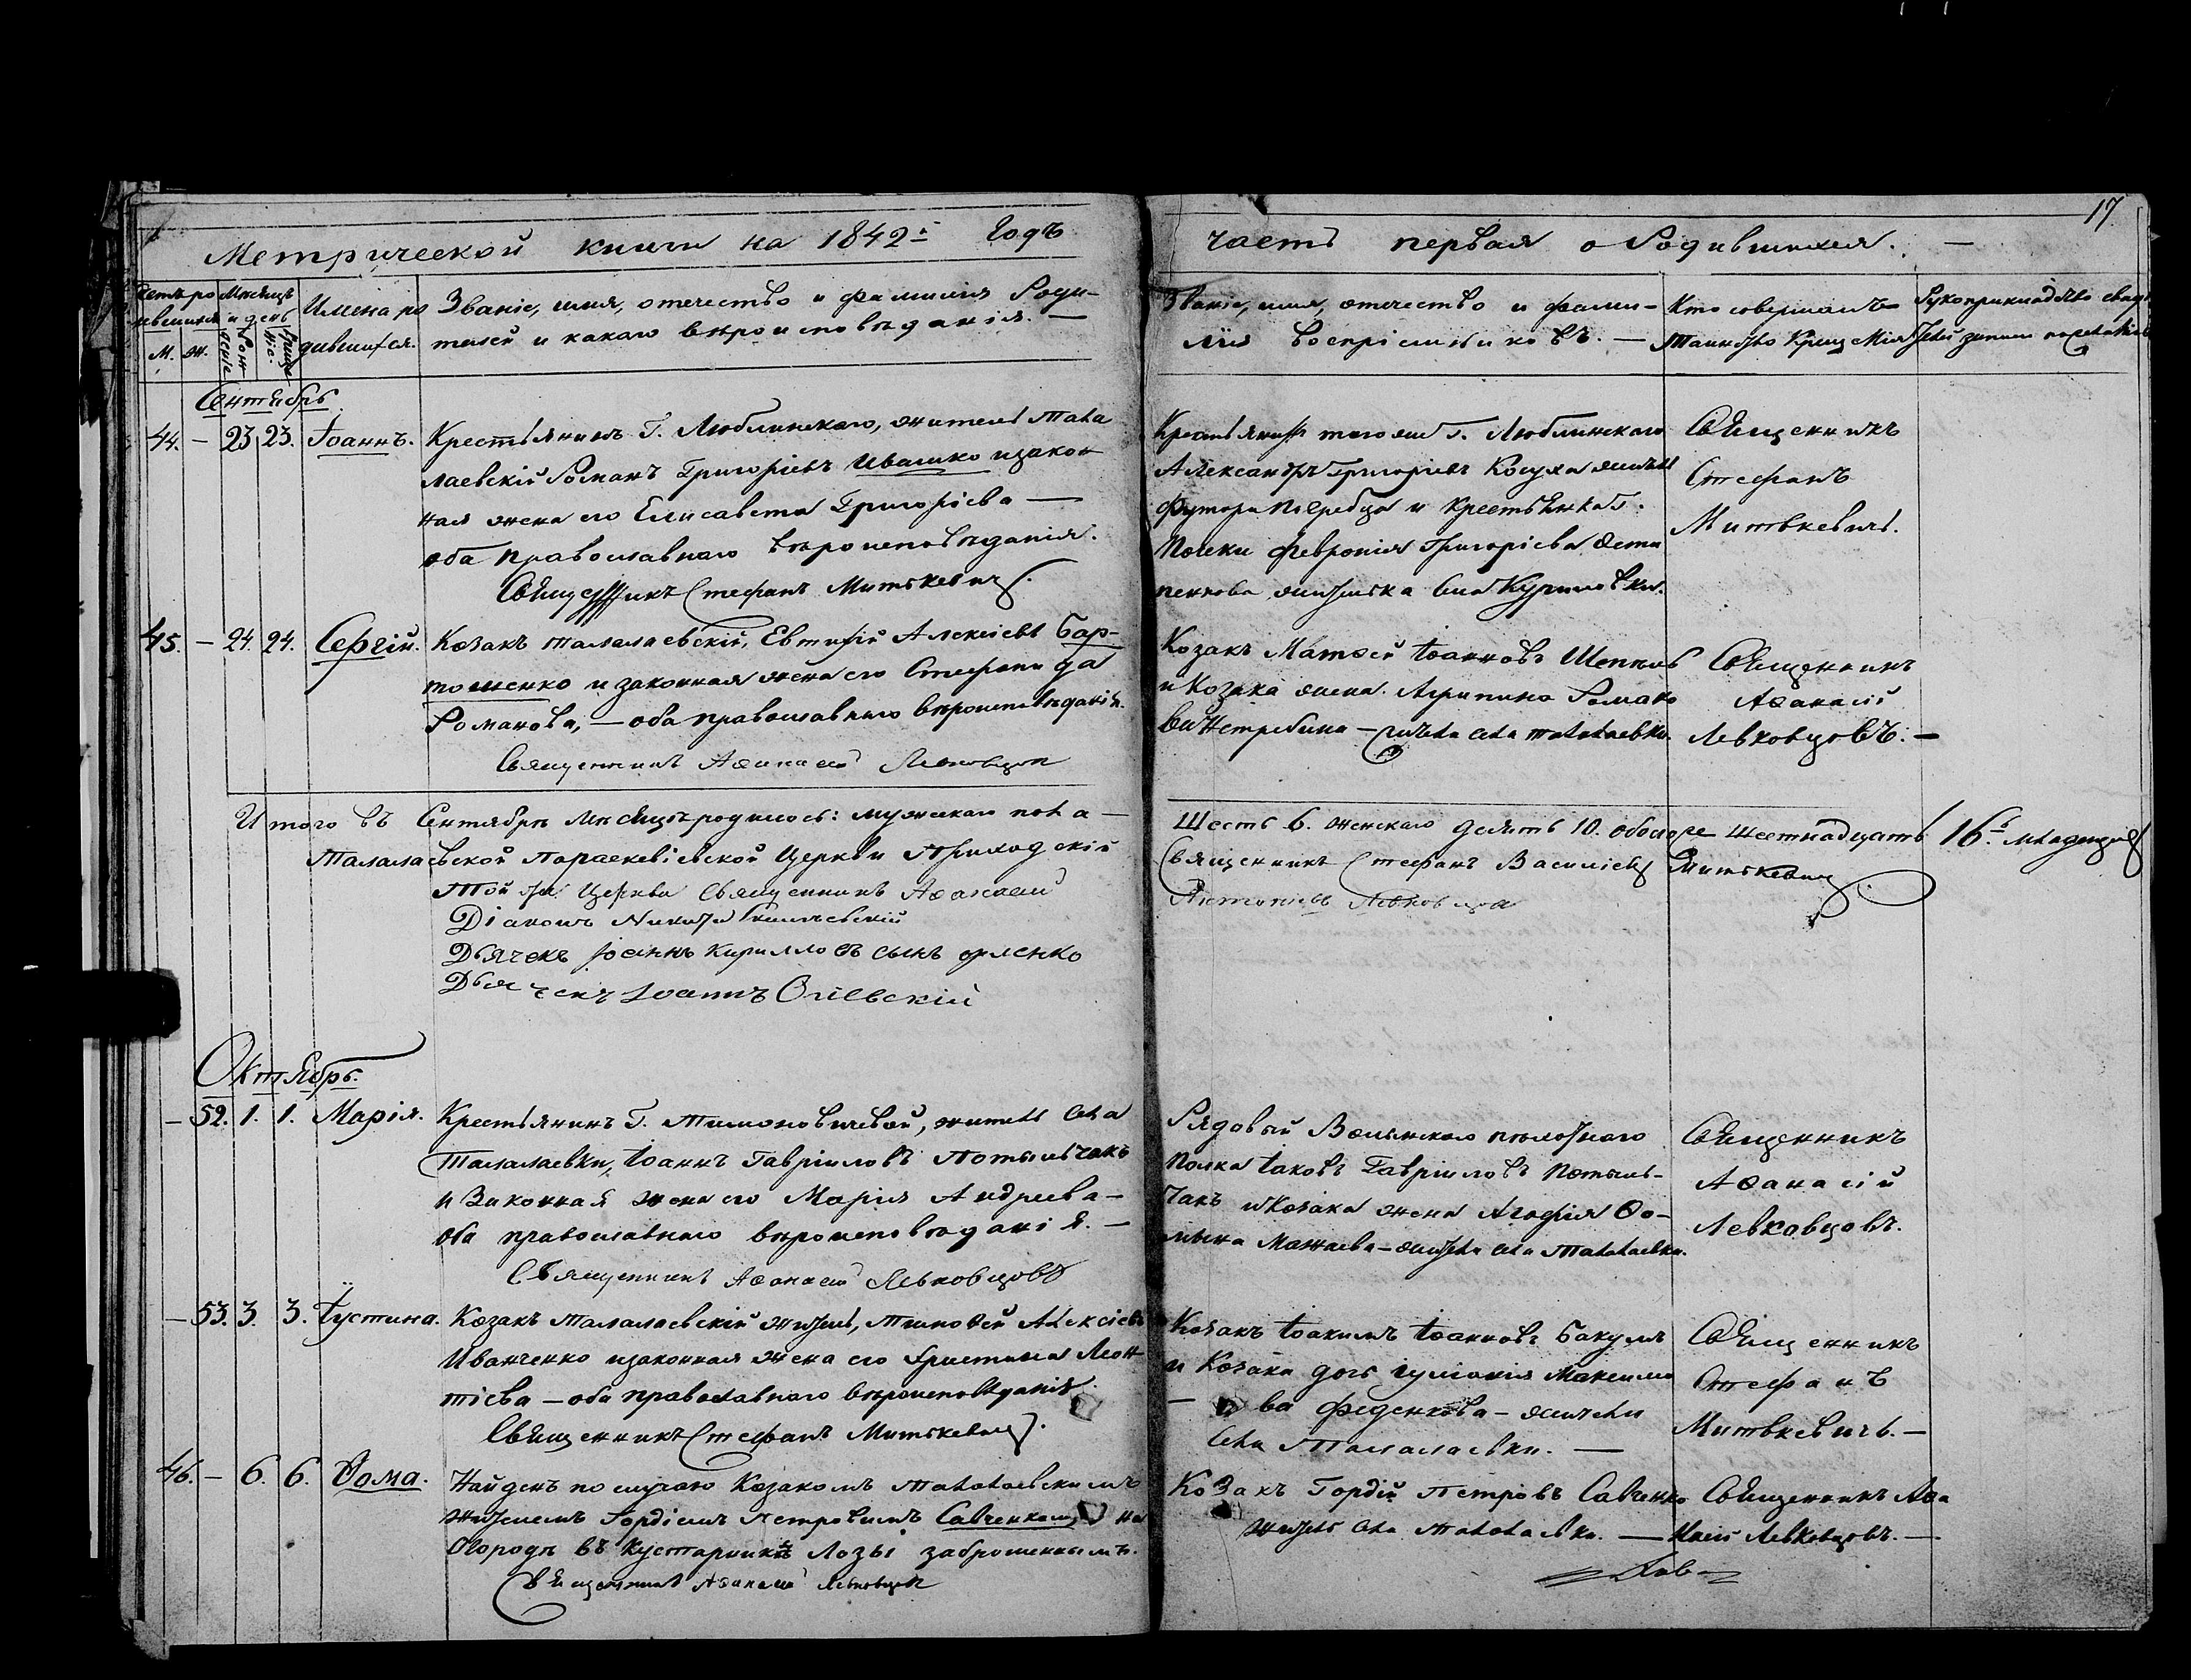 Метрической книги на 1842й Годъ
часть первая о Родившихся. —
17
Имена ро
дившихся.
Званіе, имя, отечество и фамилія Роди-
телей и какого вѣроисповѣданія. —
Званіе, имя, отечество и фами-
лія воспріемниковъ. —
Кто совершалъ
таинство Крещенія
М. ж.
Сентябрь
44. — 23 23. Іоаннъ.
Крестьянинъ Г. Люблинскаго, житель Тала
лаевскій Романъ Григоріевъ Ивашко и закон
ная жена его Елисавета Григоріева —
оба православнаго вѣроисповѣданія.
Священникъ Стефанъ Митькевичъ.
Крестьянинъ того же Г. Люблинскаго
Александръ Григоріевъ Косуха житель
Футора и Крестьянка Г.
Февронія Григоріева
Священникъ
Стефанъ
Митькевичъ.
45. — 24. 24. Сергій.
Козакъ талалаевскій, Евтифій Алексіевъ Бар-
тошенко и законная жена его Стефанида
Романова, — оба православнаго вѣроисповѣданія.
Священникъ Афанасій Левковцовъ
Козакъ Матфей Іоанновъ
и Козака жена Агрипина Романо
ва — жители села талалаевки.
Священникъ
Афанасій
Левковцовъ. —
Итого въ Сентябрѣ Мѣсяцѣ родилось: мужескаго пола —
Шесть 6. женскаго десять 10. обоего Шестнадцать 16ь младенцевъ
Талалаевской Параскевіевской Церкви Приходскій
Священникъ Стефанъ Василіевъ Митькевичъ
Той же Церкви Священникъ Афанасій
Антоніевъ Левковцовъ
Діаконъ Никита
Дьячокъ Іоаннъ Кирилловъ сынъ
Дьячекъ Іоаннъ Огіевскій
Октябрь.
— 52. 1. 1. Марія.
Крестьянинъ Г. Тимоновичевой, житель села
Талалаевки, Іоаннъ Гавріиловъ Потыльчакъ
и Законная жена его Марія Андреева —
оба православнаго вѣроисповѣданія. —
Священникъ Афанасій Левковцовъ
Рядовый Волынскаго пѣхотнаго
Полка Іаковъ Гавріиловъ Потыль-
чакъ и Козака жена Агафія Фо-
мина Мажаева — жители села Талалаевки.
Священникъ
Афанасій
Левковцовъ.
— 53. 3. 3. Іустина.
Козакъ Талалаевскій житель, Тимофей Алексіевъ
Иванченко и законная жена его Христина Леон-
тіева — оба православнаго вѣроисповѣданія.
Священникъ Стефанъ Митькевичъ.
Козакъ Іоакимъ Іоанновъ Бакумъ
и Козака дочь Іуліанія Максимо
— ва Феденкова — жители
села Талалаевки. —
Священникъ
Стефанъ
Митькевичъ. —
46. — 6. 6. Фома.
Найденъ по случаю Козакомъ Талалаевскимъ
жителемъ Гордіемъ Петровымъ Савченкомъ на
Огородѣ въ кустарникѣ Лозы заброшеннымъ.
Священникъ Афанасій Левковцовъ
Козакъ Гордій Петровъ Савченко
житель села Талалаевки. —
Священникъ Афа
насій Левковцовъ. —